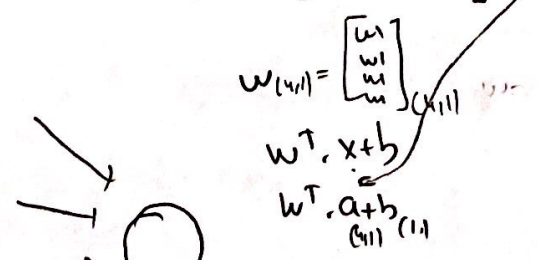 W(4,1) = [w1 w1 w1 w1] (4,1)
W^T . x+b
W^T . a+b
(4,1) (1,1